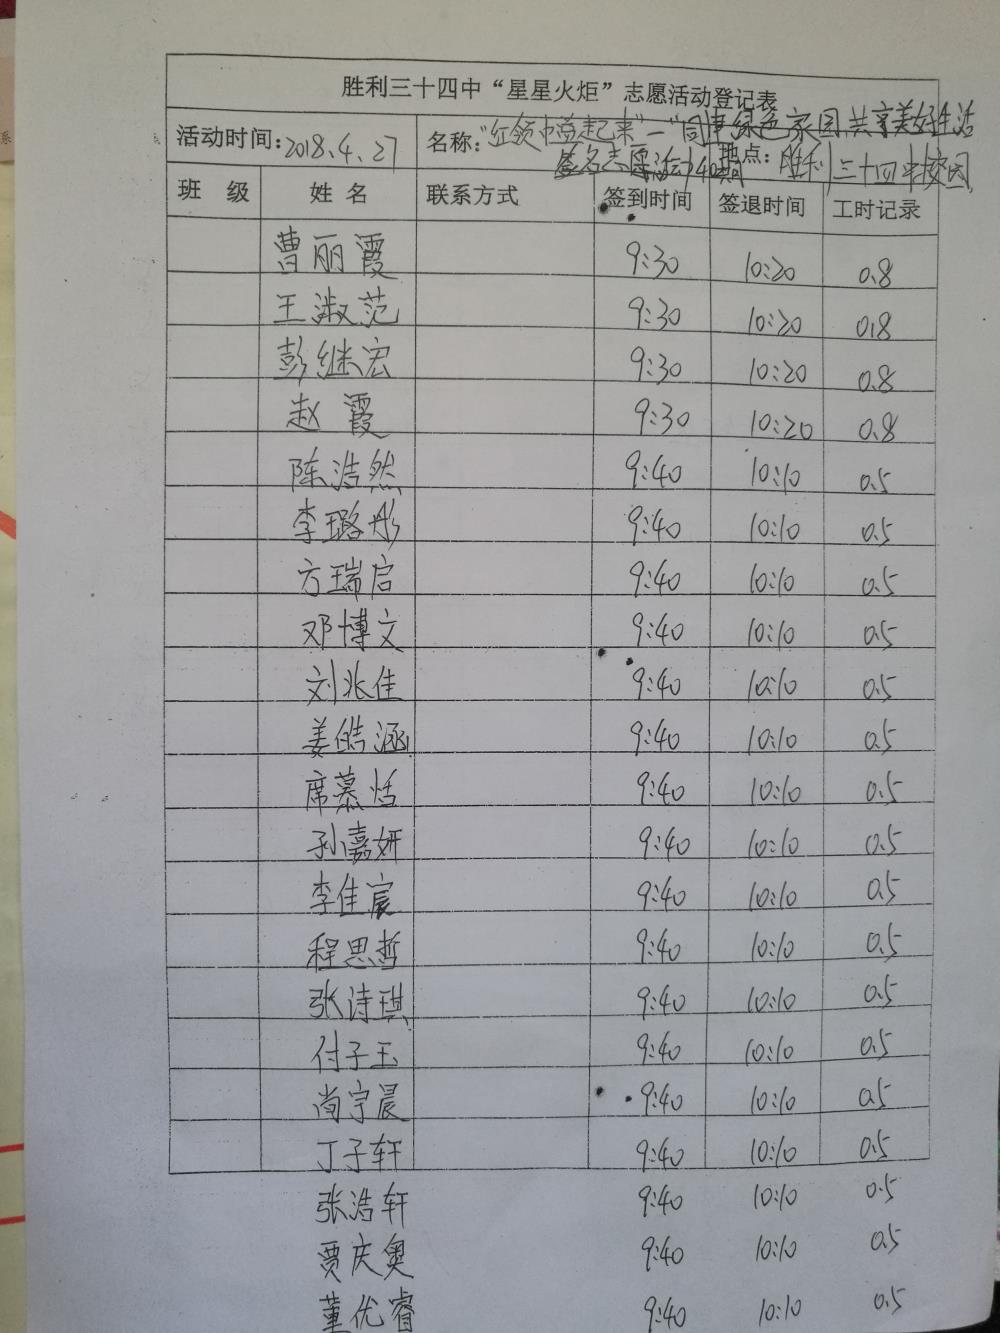 胜利三十四中“星星火炬”志愿活动登记表
活动时间：2018.4.27 名称：“红领巾益起来”—“同享绿色家园共享美好生活
签名志愿活动 地点：胜利三十四中校园
班 级 姓 名 联系方式 签到时间 签退时间 工时记录
曹丽霞 9:30 10:20 0.8
王淑范 9:30 10:20 0.8
彭继宏 9:30 10:20 0.8
赵霞 9:30 10:20 0.8
陈浩然 9:40 10:10 0.5
李璐彤 9:40 10:10 0.5
方瑞启 9:40 10:10 0.5
邓博文 9:40 10:10 0.5
刘兆佳 9:40 10:10 0.5
姜皓涵 9:40 10:10 0.5
席慕恬 9:40 10:10 0.5
孙嘉妍 9:40 10:10 0.5
李佳宸 9:40 10:10 0.5
程思哲 9:40 10:10 0.5
张诗琪 9:40 10:10 0.5
付子玉 9:40 10:10 0.5
尚宇晨 9:40 10:10 0.5
丁子轩 9:40 10:10 0.5
张浩轩 9:40 10:10 0.5
贾庆奥 9:40 10:10 0.5
董优睿 9:40 10:10 0.5